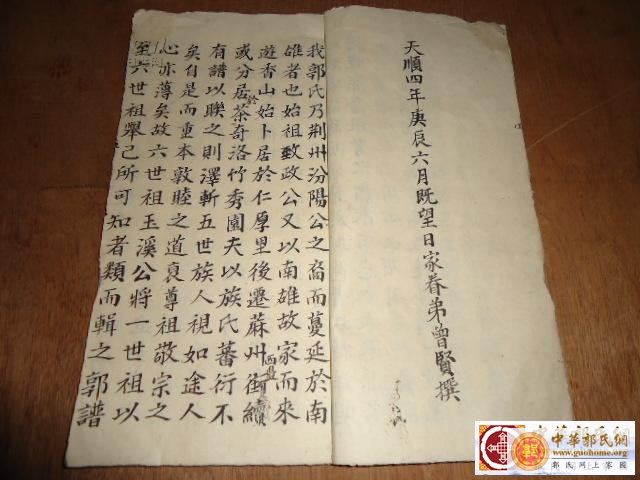 天順四年庚辰六月既望日家眷弟曾賢撰
我郭氏乃荆州汾陽公之裔而蔓延於南
雄者也始祖致政公又以南雄故家而來
遊香山始卜居於仁厚里後遷蔴州街續
或分居於茶奇洛竹秀園夫以族氏蕃衍不
有譜以聯之則澤斬五世族人視如途人
矣自是而重本敦睦之道衰尊祖敬宗之
心亦薄矣故六世祖玉溪公將一世祖以
至六世祖舉己所可知者類而輯之郭譜
中華郭氏網
www.guohome.org
郭氏网上家園